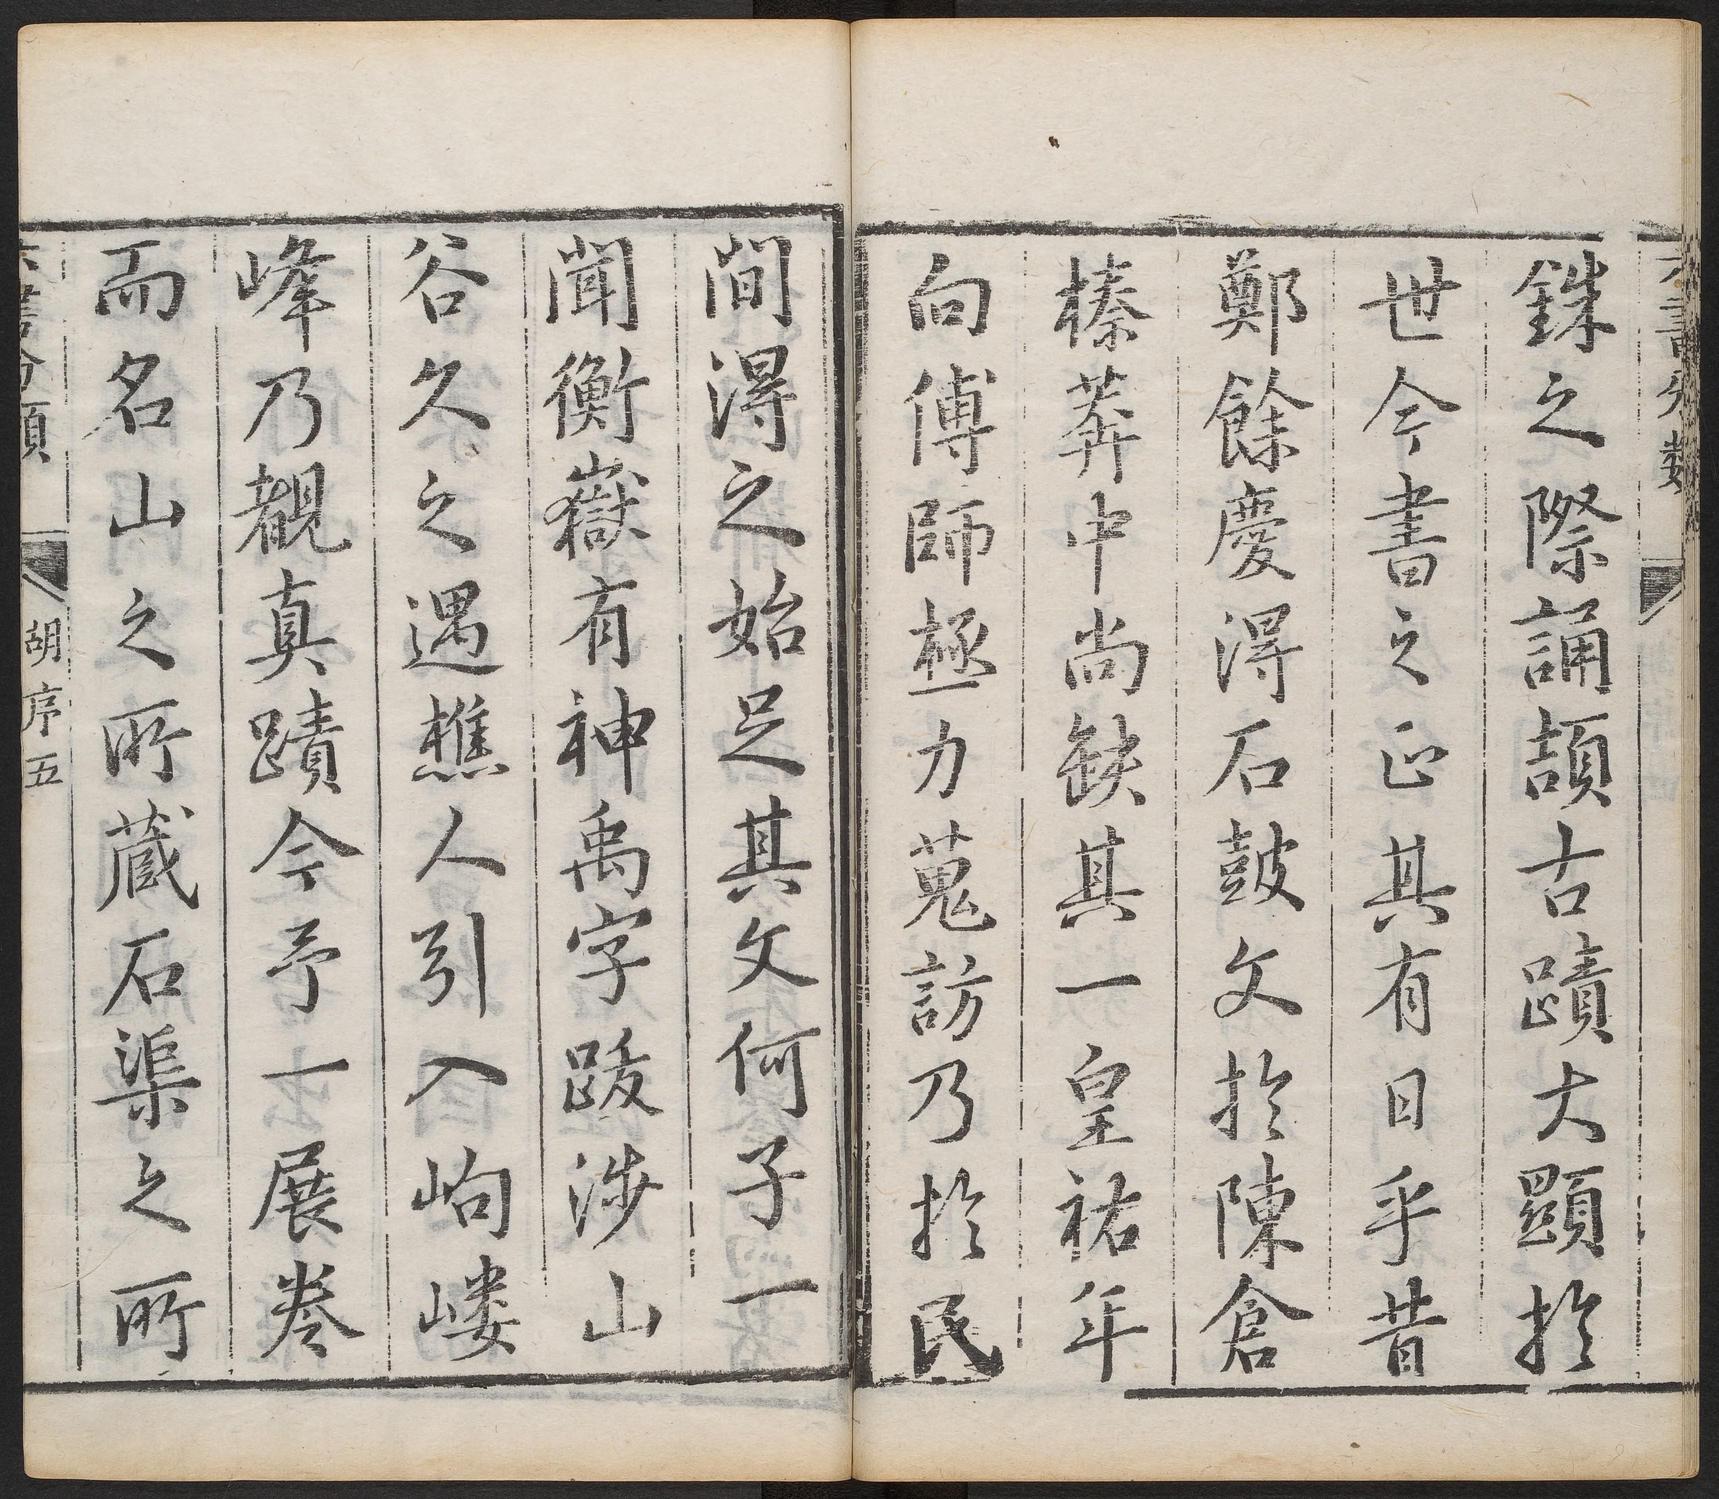 六書分類
銖之際誦頡古蹟大顯於
世今書之正其有日乎昔
鄭餘慶淂石鼓文於陳倉
榛莽中尚缺其一皇祐年
向傅師極力蒐訪乃於民
間淂之始足其文何子一
聞衡嶽有神禹字跋涉山
谷久之遇樵人引入岣嶁
峰乃覩真蹟今予一展卷
而名山之所蔵石渠之所
六書分類
胡序五